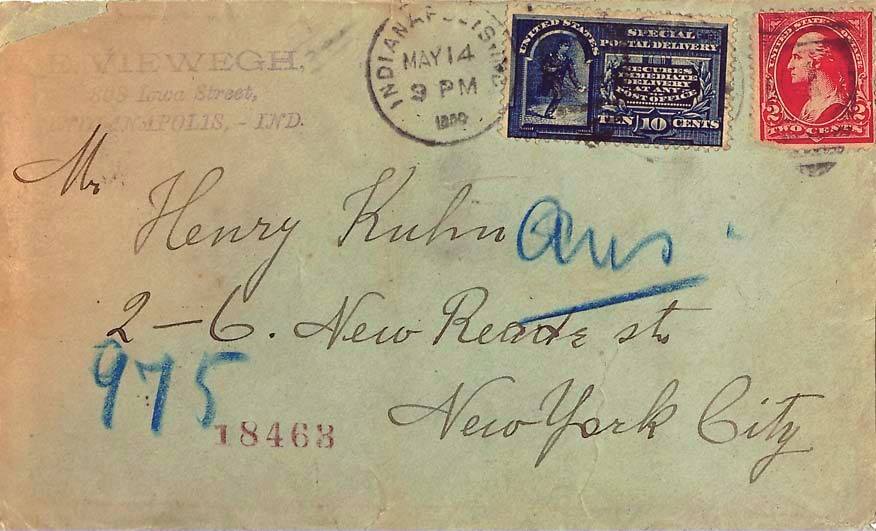 VIEWEGH,
Iowa Street,
INDIANAPOLIS, - IND.
INDIANAPOLIS, IND.
MAY 14
9 PM
UNITED STATES
SPECIAL
POSTAL DELIVERY
SECURES
IMMEDIATE
DELIVERY
AT ANY
POST OFFICE
TEN 10 CENTS
UNITED STATES POSTAGE
2 2
TWO CENTS
Mr
Henry Kuhn
Ans
2-6. New Reade st.
New York City
975
18463